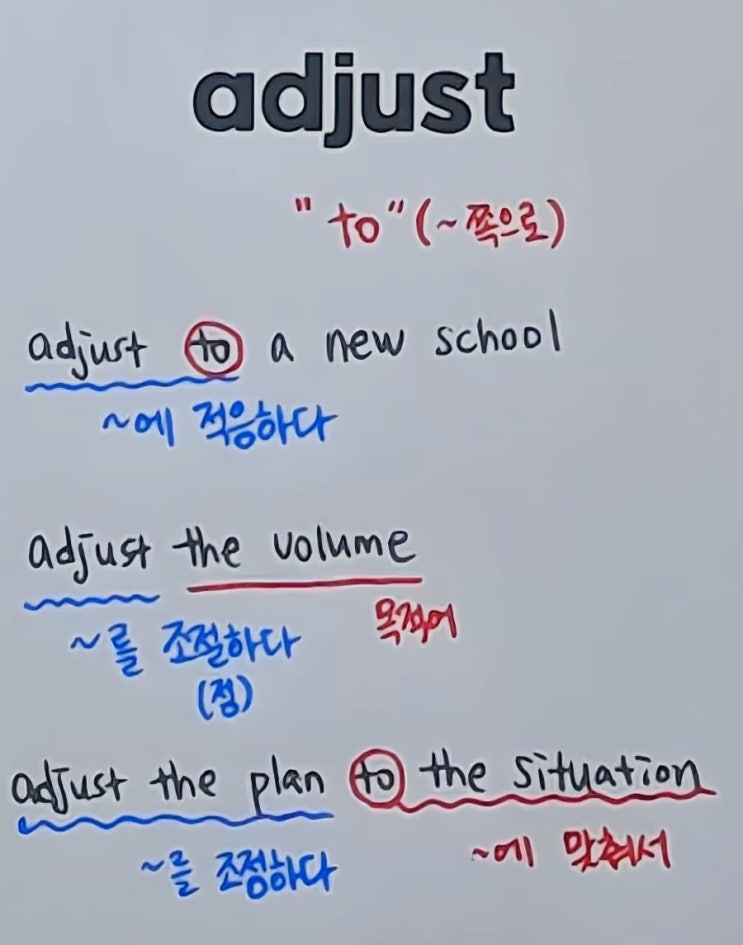 adjust
"to" (~쪽으로)
adjust to a new school
~에 적응하다
adjust the volume
~를 조절하다 목적어
(정)
adjust the plan to the situation
~를 조정하다 ~에 맞춰서